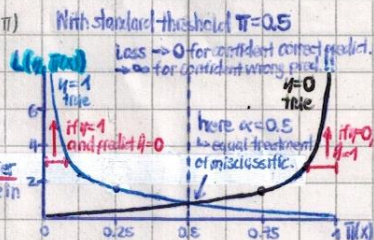 π)
With standard threshold π=0.5
Loss → 0 for confident correct predict.
→ ∞ for confident wrong pred.!!
L(y, π(x))
y=1
true
y=0
true
6
4
2
if y=1
and predict y=0
here α=0.5
↳ equal treatment
of misclassific.
if y=0,
ŷ=1
er
ein
0
0.25
0.5
0.75
1
π(x)